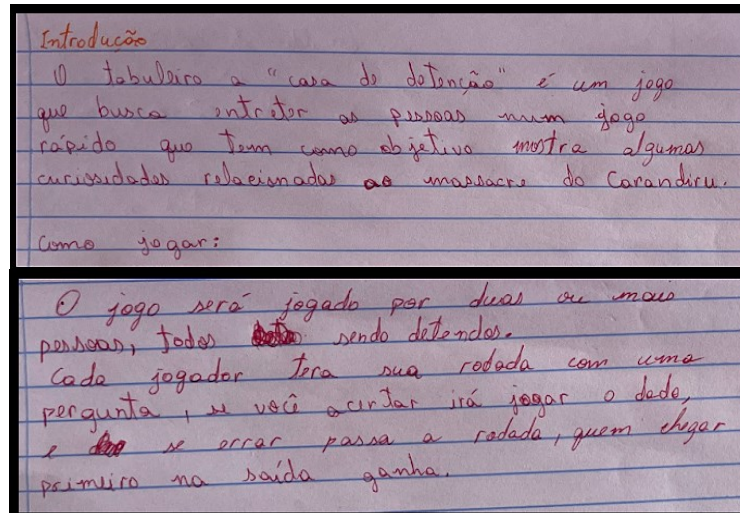 Introdução
O tabuleiro a "casa de detenção" é um jogo
que busca entreter as pessoas num jogo
rápido que tem como objetivo mostra algumas
curiosidades relacionadas ao massacre do Carandiru.
Como jogar:
O jogo será jogado por duas ou mais
pessoas, todos sendo detendos.
Cada jogador tera sua rodada com uma
pergunta, se você acertar irá jogar o dado,
e se errar passa a rodada, quem chegar
primeiro na saída ganha.